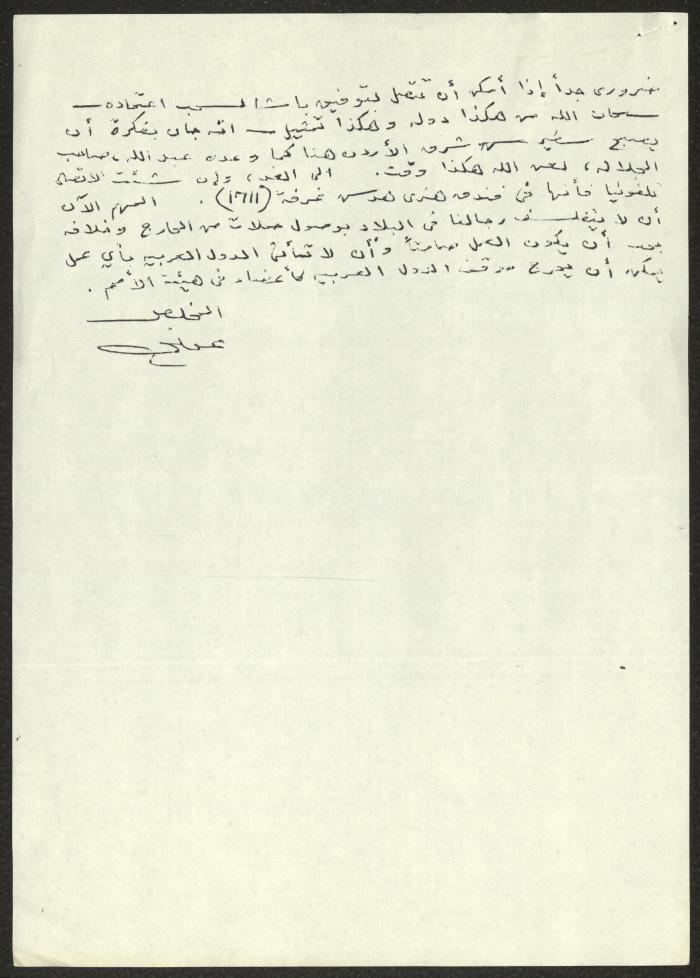 ضروري جداً إذا أمكن أن تتصل بتوفيق باشا لسحب اعتماده ــ
سبحان الله من هكذا دولة وهكذا تمثيل ــ انه جاء بفكرة أن
يصبح سفير شرق الأردن هنا كما وعده عبد الله، صاحب
الجلالة، لعن الله هكذا وقت. الى الغد، وإن شئت الاتصال
تلفونيا فأنها في فندق هنري هدسن غرفة (١٢١١). المهم الآن
أن لا رجالنا في البلاد بوصول حملات من الخارج وخلافه
يجب أن يكون العمل صامتاً وأن لا تأتي الدول العربية بأي عمل
يمكن أن يحرج موقف الدول العربية كأعضاء في هيئة الأمم.
المخلص